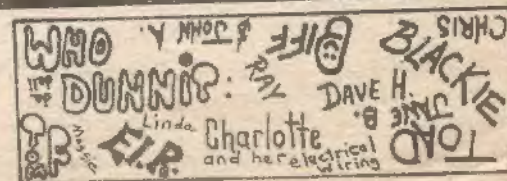 WHO
DUNNIT:
& JOHN A.
BIFF
CHRIS
BLACKIE
RAY
DAVE H.
JANE B.
TOAD
Linda
E.I.R.
Charlotte
and her electrical
wiring